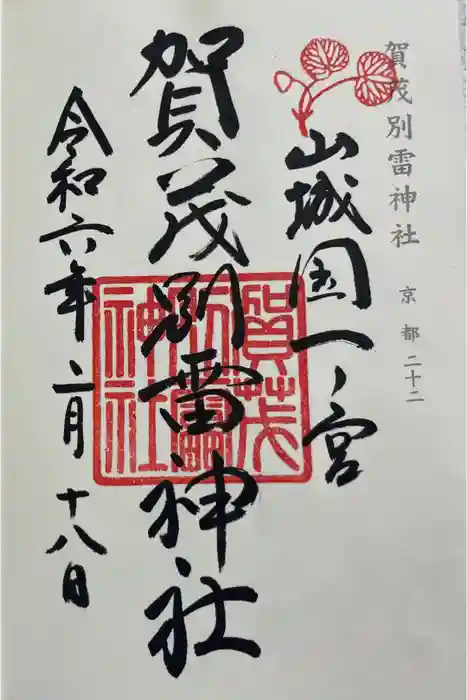 賀茂別雷神社 京都 二十二
山城国一ノ宮
賀茂別雷神社
賀茂別雷神社
令和六年二月十八日